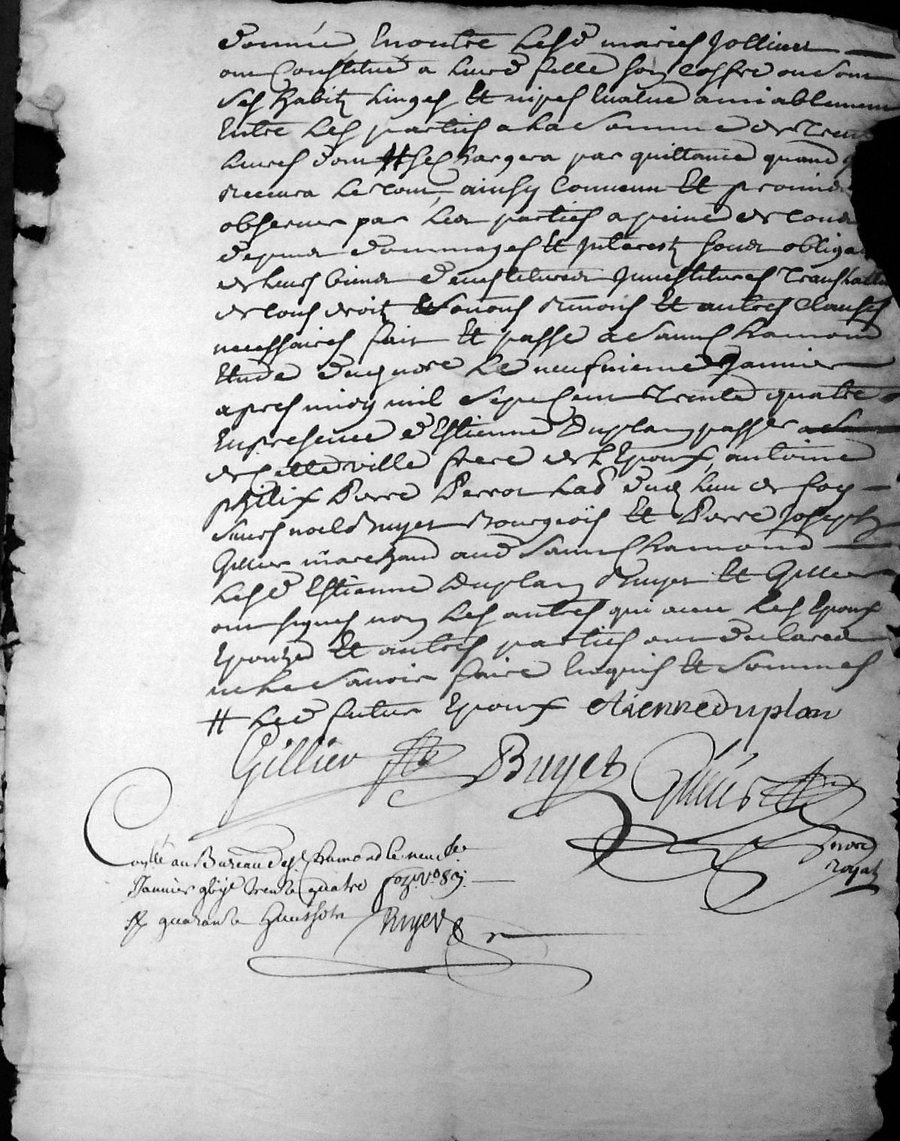 donnée En outre lesd maries Jollivet
ont Constitué a leurd fille son Coffre ou Sont
Ses habitz linges Et nipes Evalué amiablement
Entre les parties a la Somme de Trente
livres dont # se Chargera par quittance quand
Recevra le tout, ainsy Convenu Et promis
observer par les parties a peine de tous
depens dommages Et Interest Sous obligation
de leurs biens Investitures
de tous droit Et autres Clauses
necessaires fait Et passé a Saint Chamond
Etude dud nore le neufvieme Janvier
apres midy mil Sept Cent Trente quatre
En presence d'Estienne Duplan
de Cette ville frere de l'Epoux, antoine
phillix Pierre Perrot lab dud lieu de
Sieurs noel Bruyet Bourgeois Et Pierre Joseph
Gillier marchand aud Saint Chamond
Lesd Estienne Duplan Bruyet Et Gillier
ont signes non les autres qui avec les Epoux
Epouze Et autres parties ont declaré
ne le Savoir faire Enquis Et Sommes
# Led futur Epoux Etienne duplan
Gillier Bruyet
nore
royal
Conllé au Bureau de St Chamond le neufe
Janvier trente quatre
quarante huit sols Bruyet